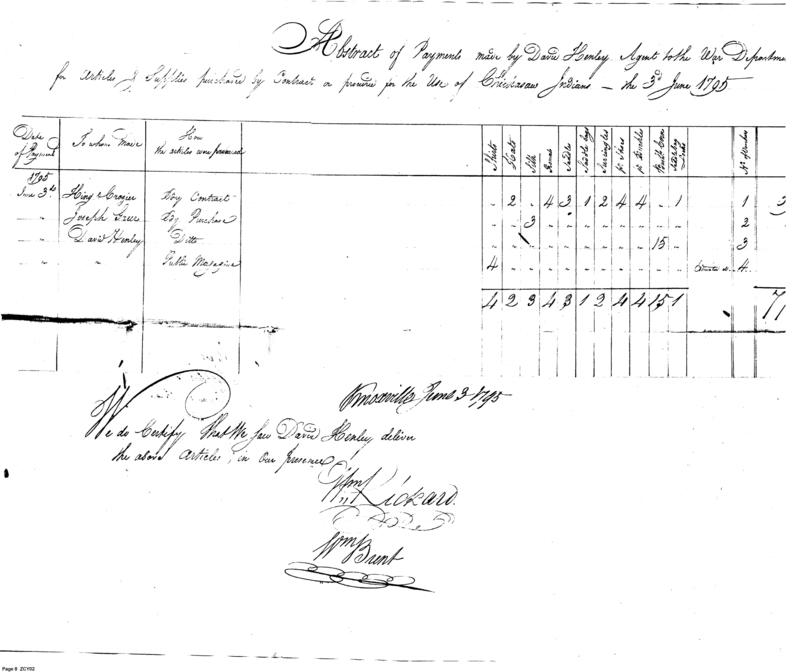 Abstract of Payments made by David Henley Agent to the War Departme
for Articles & Supplies purchased by Contract or provided for the Use of Chickasaw Indians — the 3d June 1795
Date of Payment To whom Made How the articles were procured Shirts Hats Silk Saddles Saddle bags Surcingles pr Shoes pr Buckles Bush. Corn No. of Voucher
1795
June 3d. King & Crozier By Contract " 2 . 4 3 1 2 4 4 . 1 1
" Joseph Greer By Purchase " " 3 " " " " " " " " 2
" David Henley Ditto " " " " " " " " " 15 " 3
" " Public Magazine 4 " " " " " " " " " " 4
4 2 3 4 3 1 2 4 4 15 1 7
Knoxville June 3 1795
We do Certify that We saw David Henley deliver
the above articles, in our presence
Wm Rickard
Wm Brent
Page 8 ZCY02